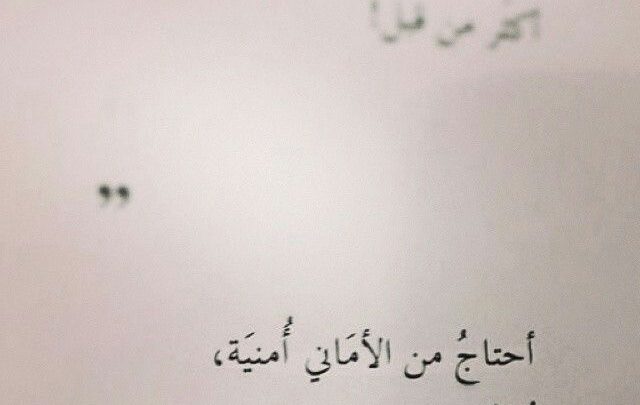 أكثر من قبل!
”
أحتاجُ من الأمَاني أُمنيَة،